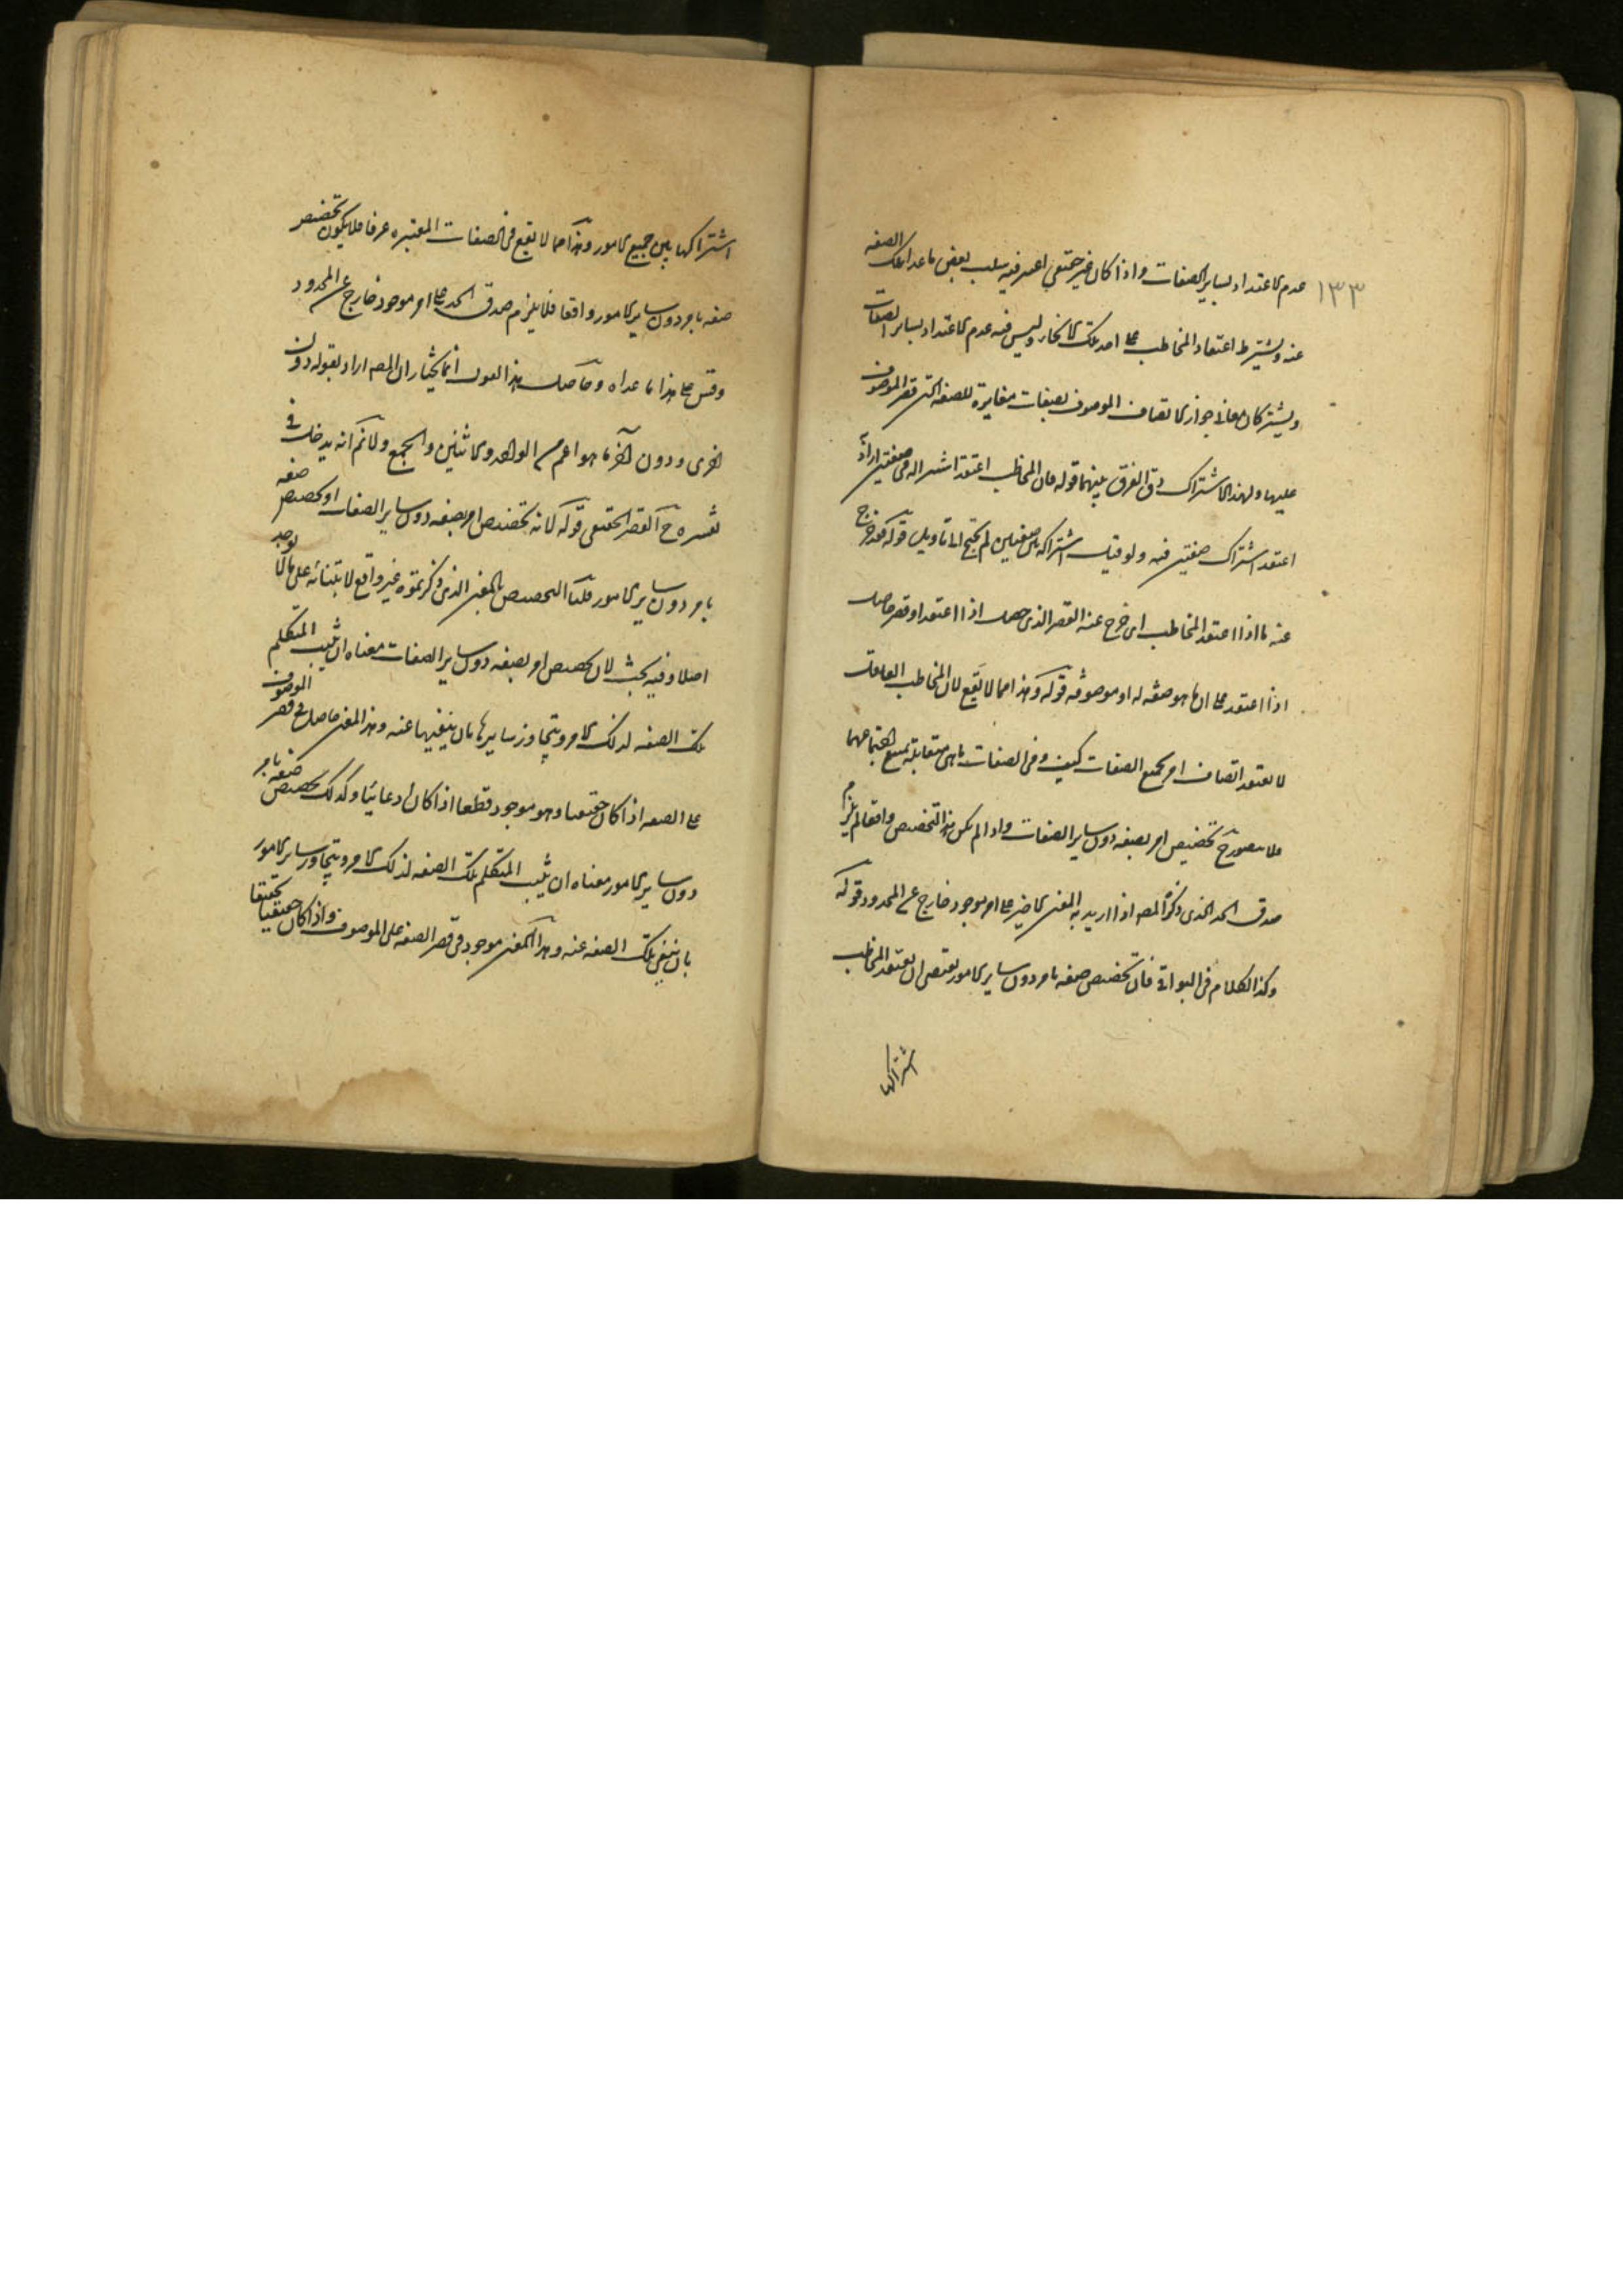 ١٣٣
عدم الاعتداد بسایر الصفات واذا کان غیر حقیقی اعتبر فیه سلب بعض ما عدا تلک الصفه
عنه ویشترط اعتقاد المخاطب علی احد تلک الانحاء ولیس فیه عدم الاعتداد بسایر الصفات
ویشترکان معا فی جواز اتصاف الموصوف بصفات مغایرة للصفه التی قصر الموصوف
علیها ولهذا الاشتراک دق الفرق بینهما قوله فان المخاطب اعتقد اشتراکه فی صفتین اراد
اعتقد اشتراک صفتین فیه ولو قیل اشتراکه بین صفتین لم یحتج الی تاویل قوله فخرج
عنه ما اذا اعتقد المخاطب ای خرج عنه القصر الذی حصل اذا اعتقد او قصر حاصل
اذا اعتقد علی ان ما هو صفه له او موصوفه قوله وهذا مما لا یقع لان المخاطب العاقل
لا یعتقد اتصاف امر بجمیع الصفات کیف وفی الصفات ما هی متقابله یمتنع اجتماعهما
فلا یتصور ح تخصیص امر بصفه دون سایر الصفات واذا لم یکن هذا التخصیص واقعا لم یلزم
صدق الحد الذی ذکره المصه اذا ارید به المعنی الاخیر علی امر موجود خارج عن المحدود قوله
وکذا الکلام فی البواقی فان تخصیص صفه بامر دون سایر الامور یقتضی ان یعتقد المخاطب
اشتراکها
اشتراکها بین جمیع الامور وهذا مما لا یقع فی الصفات المعتبره عرفا فلا یکون تخصیص
صفه بامر دون سایر الامور واقعا فلا یلزم صدق الحد علی امر موجود خارج عن المحدود
وقس علی هذا ما عداه وحاصل هذا القول انما نختار ان المصه اراد بقوله دون
اخری ودون آخر ما هو اعم من الواحد والاثنین والجمع ولا نم انه یدخل فی
تفسیره ح القصر الحقیقی قوله لانه تخصیص امر بصفه دون سایر الصفات او تخصیص صفه
بامر دون سایر الامور قلنا التخصیص بالمعنی الذی ذکرتموه غیر واقع لابتنائه علی ما لا یوجد
اصلا وفیه بحث لان تخصیص امر بصفه دون سایر الصفات معناه ان یثبت المتکلم
تلک الصفه لذلک الامر ویتجاوز سایرها بان ینفیها عنه وهذا المعنی حاصل فی قصر الموصوف
علی الصفه اذا کان حقیقیا وهو موجود قطعا اذا کان ادعائیا وکذلک تخصیص صفه بامر
دون سایر الامور معناه ان یثبت المتکلم تلک الصفه لذلک الامر ویتجاوز سایر الامور
بان ینفی تلک الصفه عنه وهذا المعنی موجود فی قصر الصفه علی الموصوف اذا کان حقیقیا تحقیقا